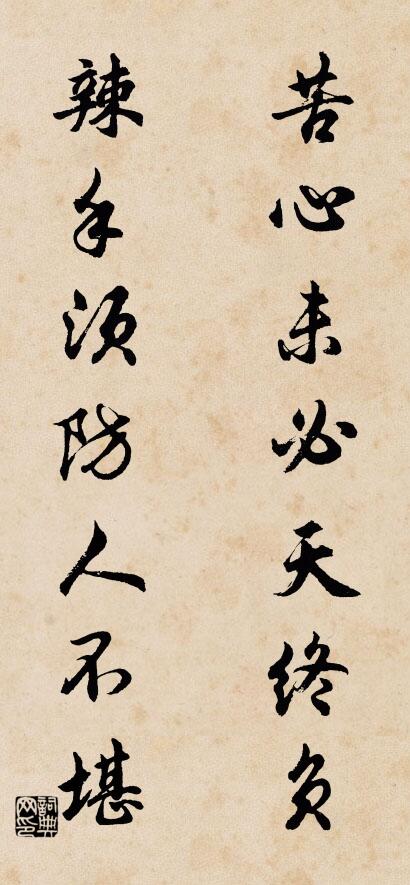 苦心未必天终负
辣手须防人不堪
詞典网印